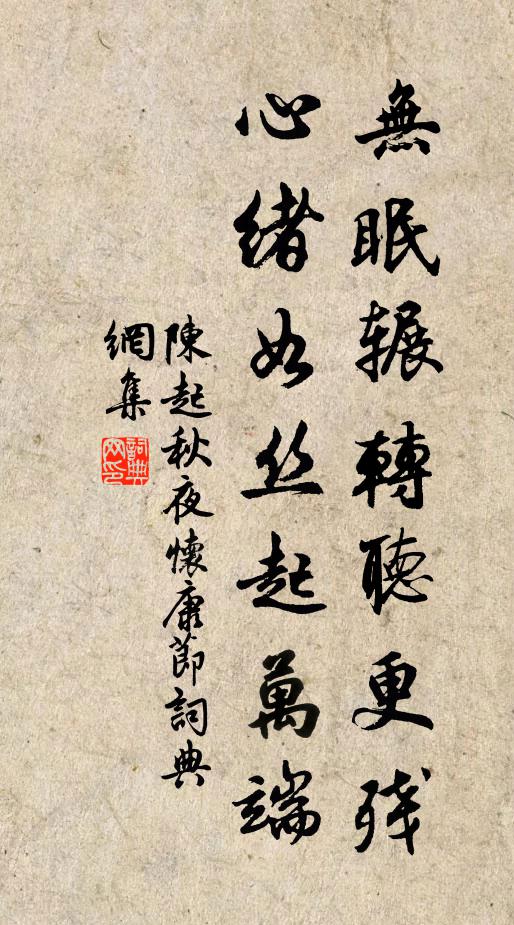 無眠辗轉聽更残
心緒如丝起萬端
陳起秋夜懷康節詞典
網集
詞典網印